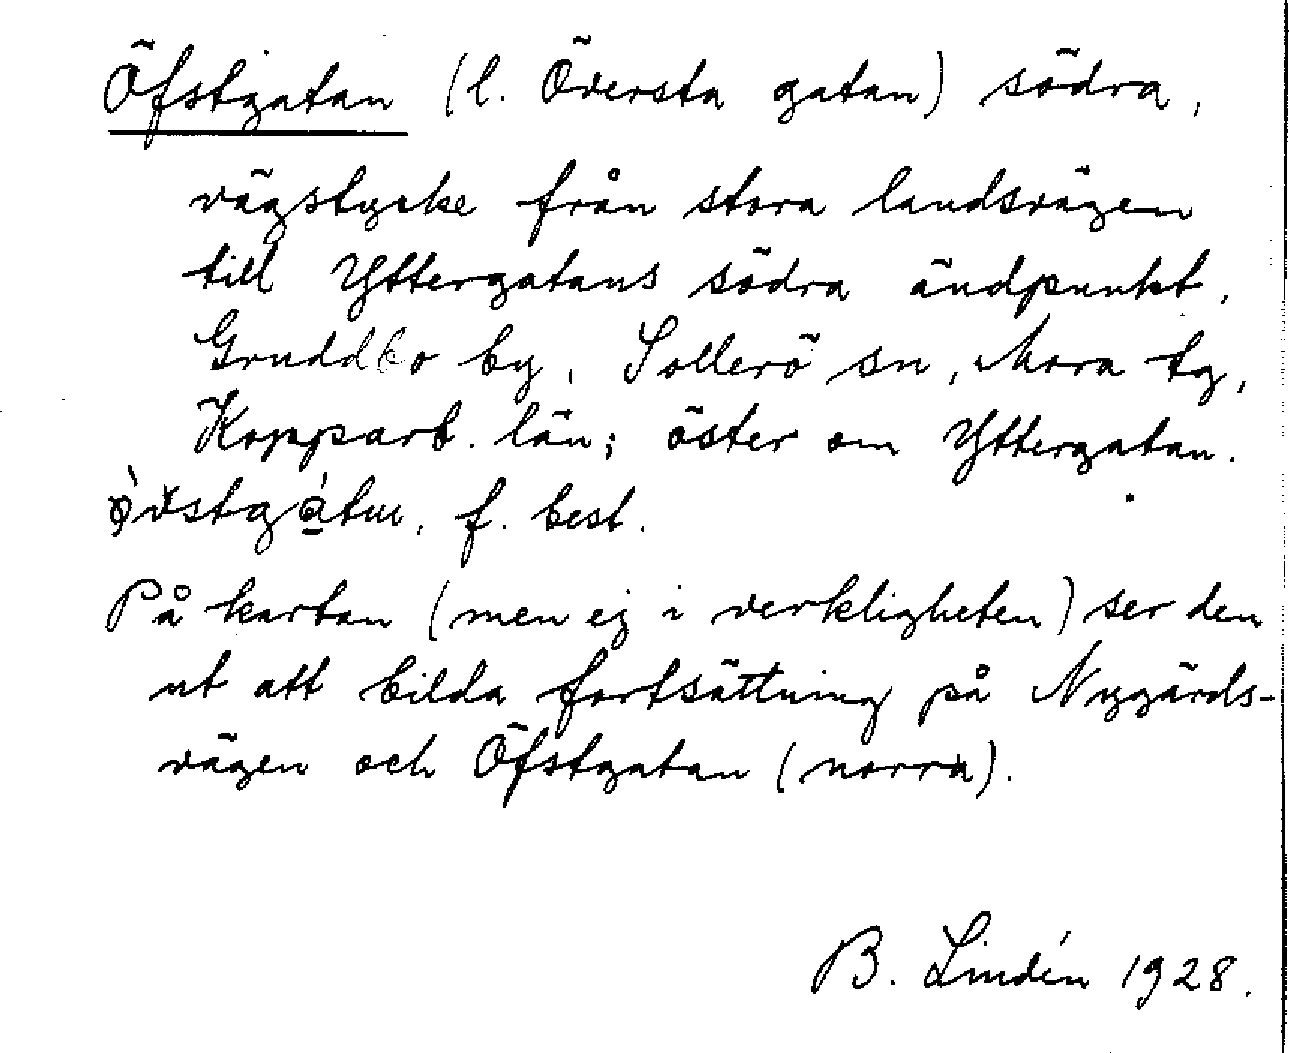 Öfstgatan (l. Översta gatan) södra,
vägstycke från stora landsvägen
till Yttergatans södra ändpunkt,
Gruddbo by, Sollerö sn, Mora tg,
Kopparb. län; öster om Yttergatan.
f. best.
På kartan (men ej i verkligheten) ser den
ut att bilda fortsättning på Nygärds-
vägen och Öfstgatan (norra).
B. Lindén 1928.